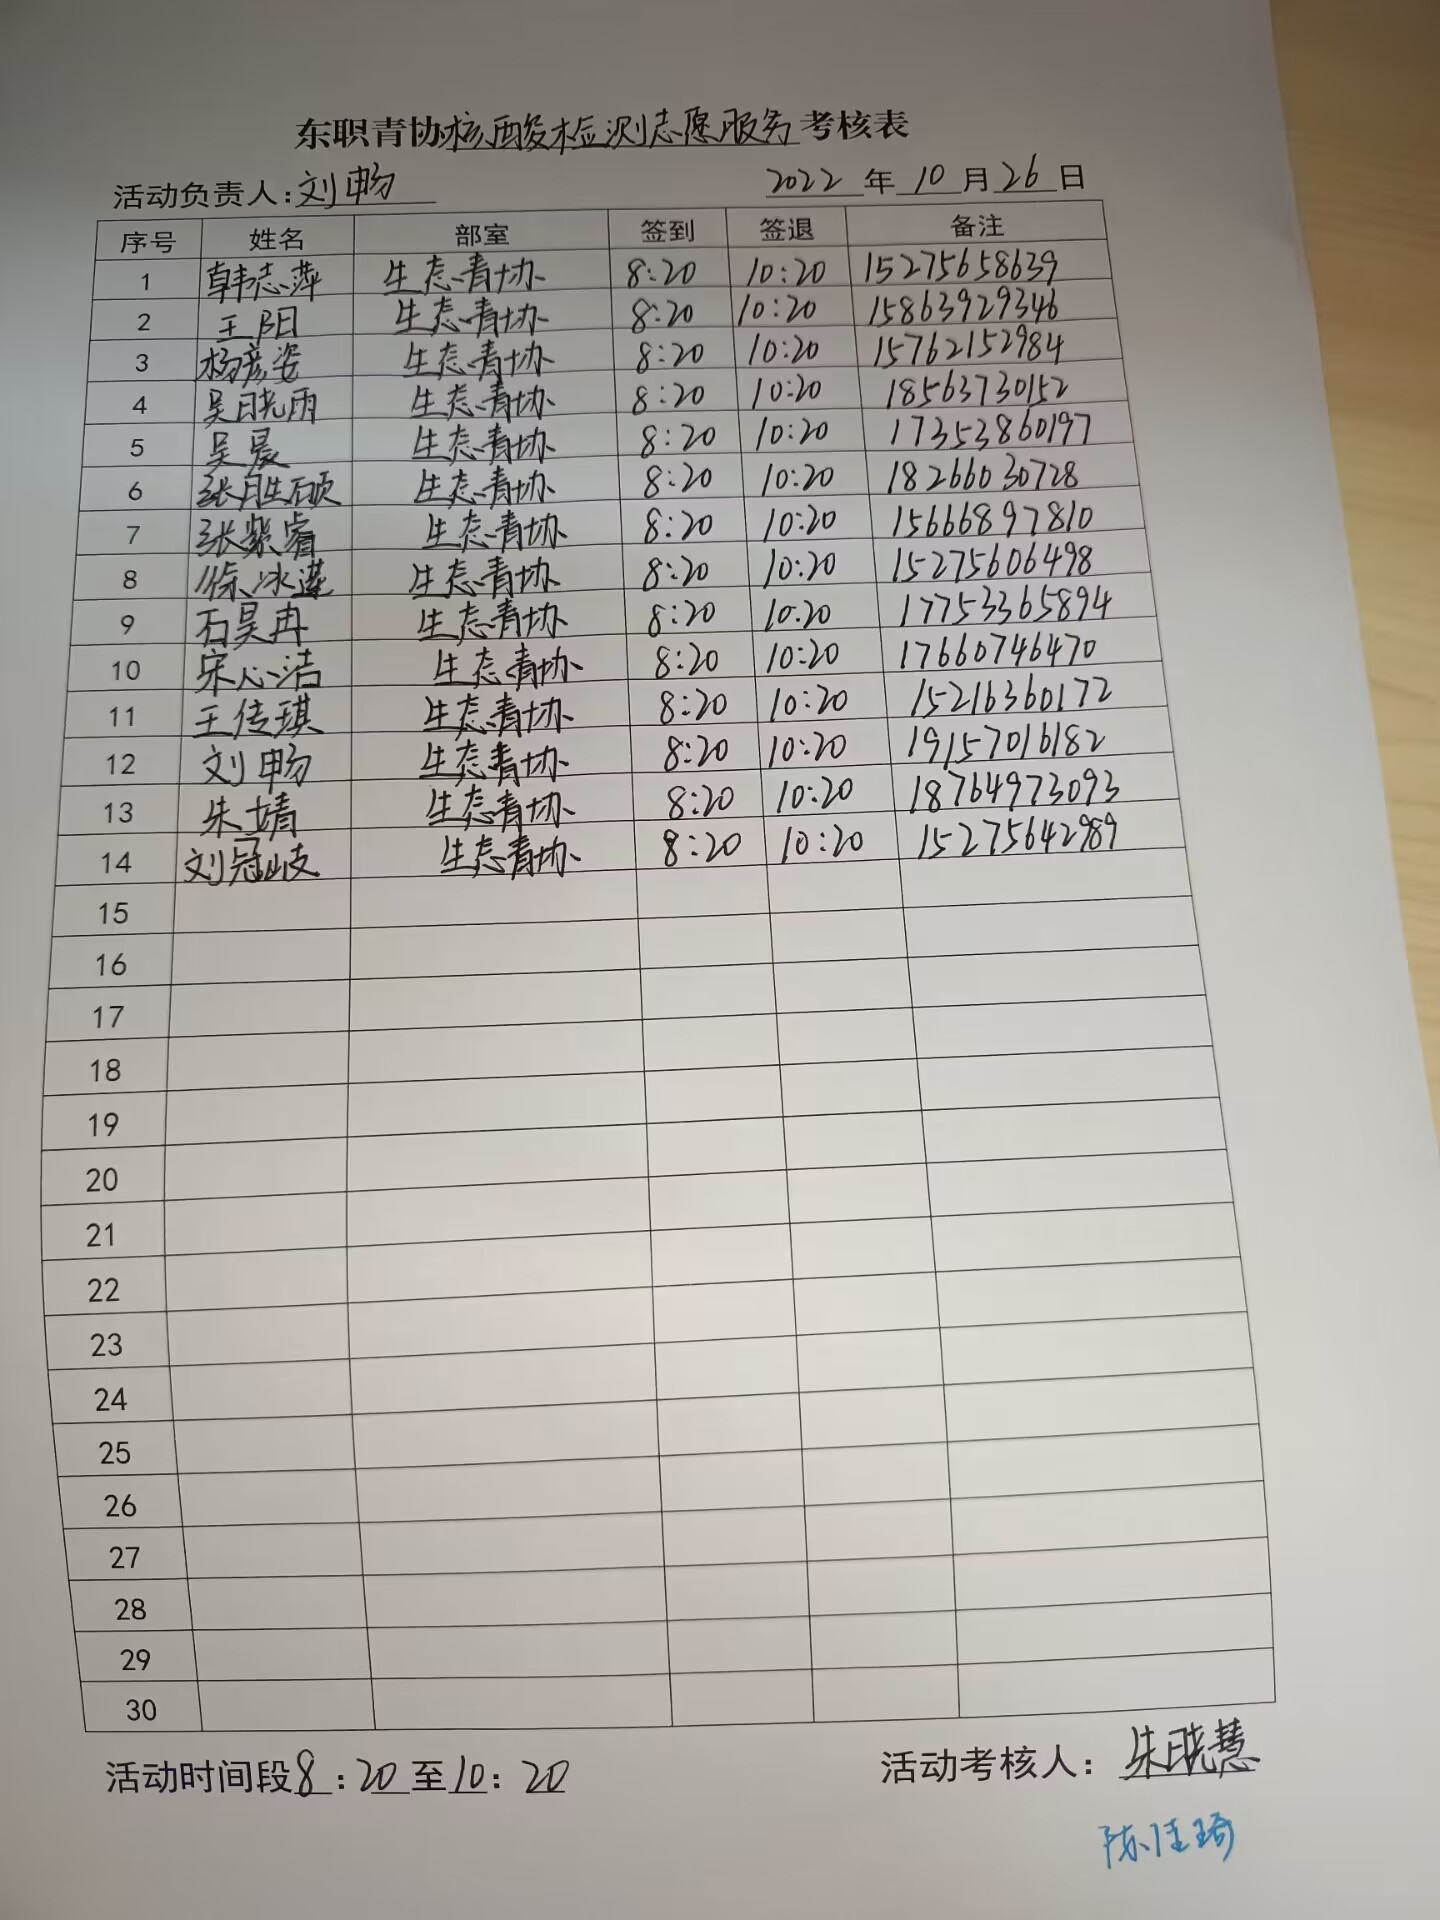 东职青协核酸检测志愿服务考核表
活动负责人:刘畅 2022年10月26日
序号 姓名 部室 签到 签退 备注
1 韩志萍 生态青协 8:20 10:20 15275658639
2 王阳 生态青协 8:20 10:20 15863929346
3 杨彦姿 生态青协 8:20 10:20 15762152984
4 吴晓雨 生态青协 8:20 10:20 18563730152
5 吴晨 生态青协 8:20 10:20 17353860197
6 张胜硕 生态青协 8:20 10:20 18266030728
7 张紫睿 生态青协 8:20 10:20 15666897810
8 徐冰莲 生态青协 8:20 10:20 15275606498
9 石昊冉 生态青协 8:20 10:20 17753365894
10 宋心洁 生态青协 8:20 10:20 17660746470
11 王传琪 生态青协 8:20 10:20 15216360172
12 刘畅 生态青协 8:20 10:20 19157016182
13 朱婧 生态青协 8:20 10:20 18764973093
14 刘冠岐 生态青协 8:20 10:20 15275642989
15
16
17
18
19
20
21
22
23
24
25
26
27
28
29
30
活动时间段8:20至10:20 活动考核人:朱晓慧
陈佳琦